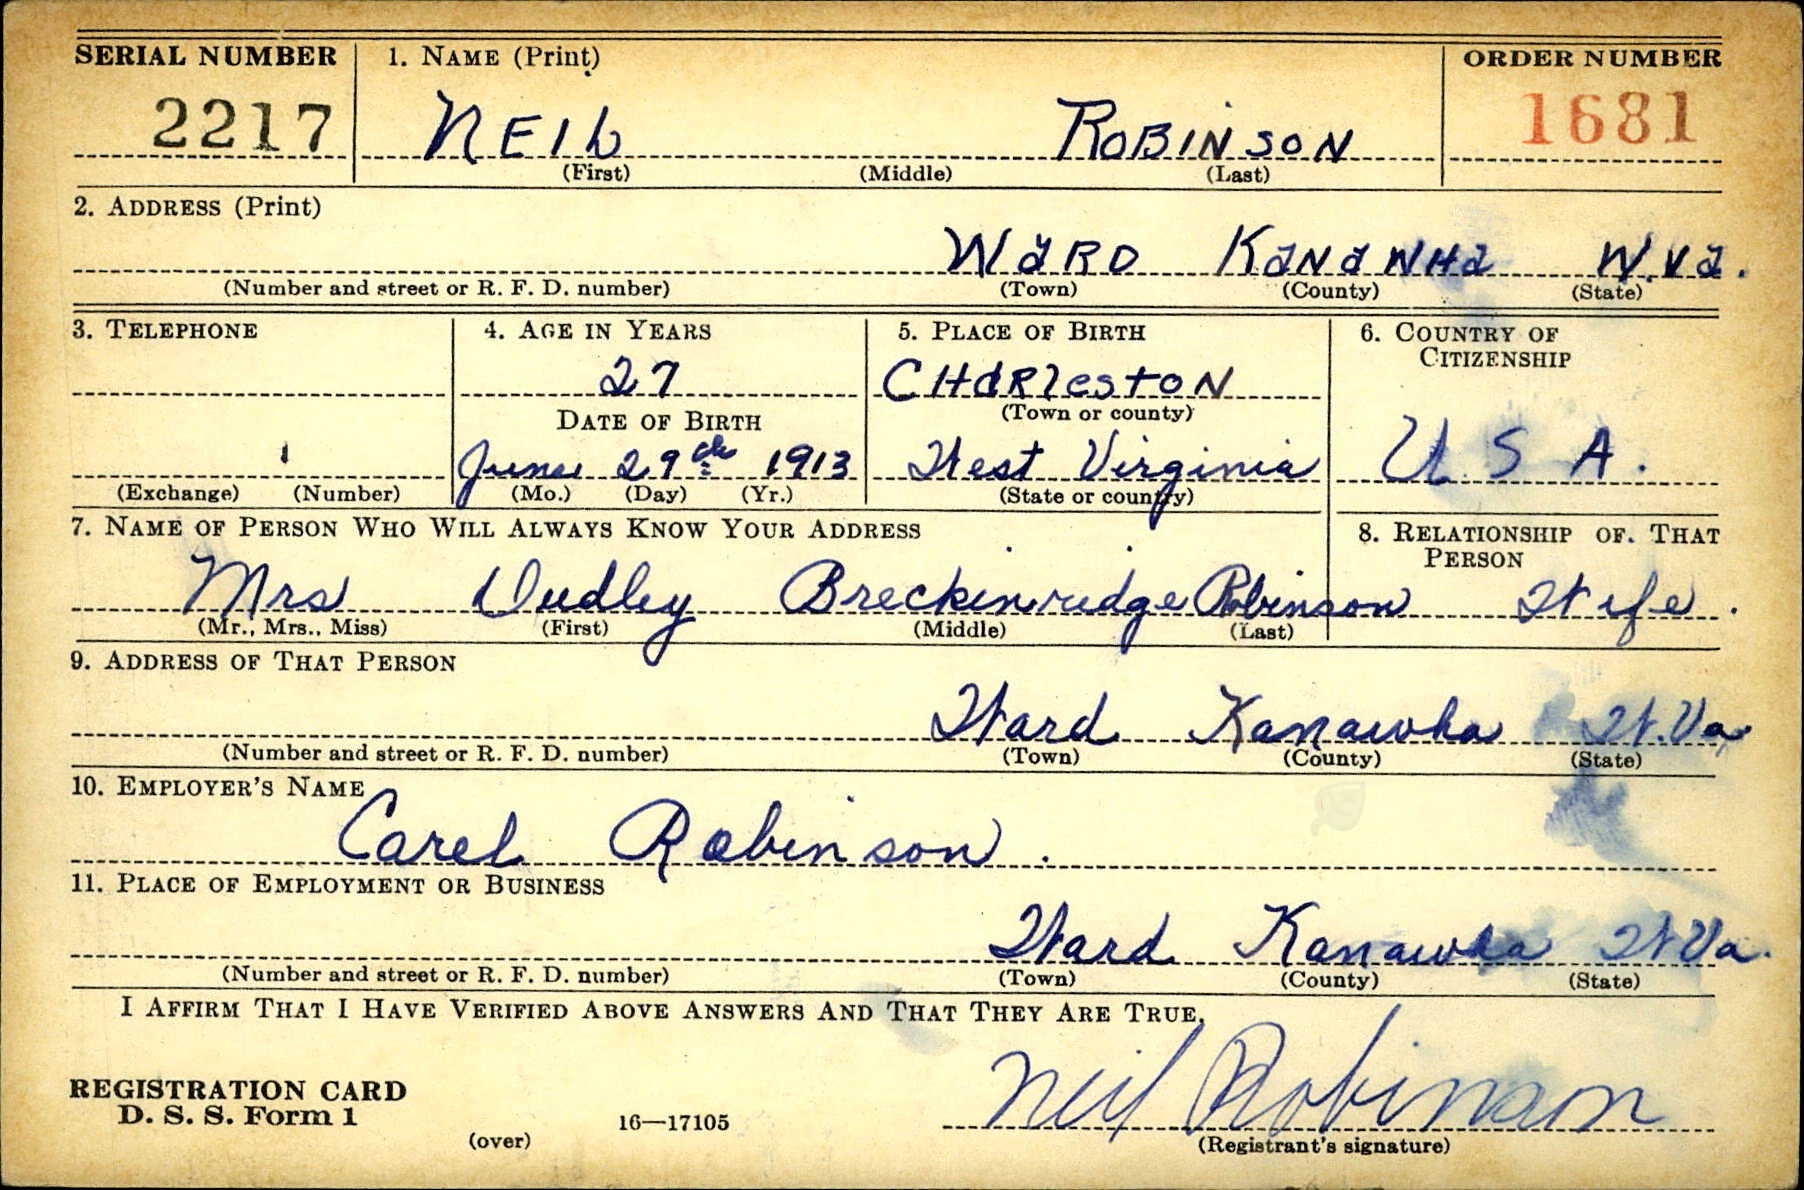 SERIAL NUMBER 1. NAME (Print) ORDER NUMBER
2217 NEIL ROBINSON 1681
(First) (Middle) (Last)
2. ADDRESS (Print)
WARD KANAWHA W.VA.
(Number and street or R. F. D. number) (Town) (County) (State)
3. TELEPHONE 4. AGE IN YEARS 5. PLACE OF BIRTH 6. COUNTRY OF CITIZENSHIP
27 CHARlesTON
DATE OF BIRTH (Town or county)
June 29th 1913 West Virginia U.S.A.
(Exchange) (Number) (Mo.) (Day) (Yr.) (State or country)
7. NAME OF PERSON WHO WILL ALWAYS KNOW YOUR ADDRESS 8. RELATIONSHIP OF THAT PERSON
Mrs Dudley Breckinridge Robinson Wife.
(Mr., Mrs., Miss) (First) (Middle) (Last)
9. ADDRESS OF THAT PERSON
Ward Kanawha W.Va
(Number and street or R. F. D. number) (Town) (County) (State)
10. EMPLOYER'S NAME
Carel Robinson.
11. PLACE OF EMPLOYMENT OR BUSINESS
Ward Kanawha W Va.
(Number and street or R. F. D. number) (Town) (County) (State)
I AFFIRM THAT I HAVE VERIFIED ABOVE ANSWERS AND THAT THEY ARE TRUE.
REGISTRATION CARD
D. S. S. Form 1 16—17105 Neil Robinson
(over) (Registrant's signature)